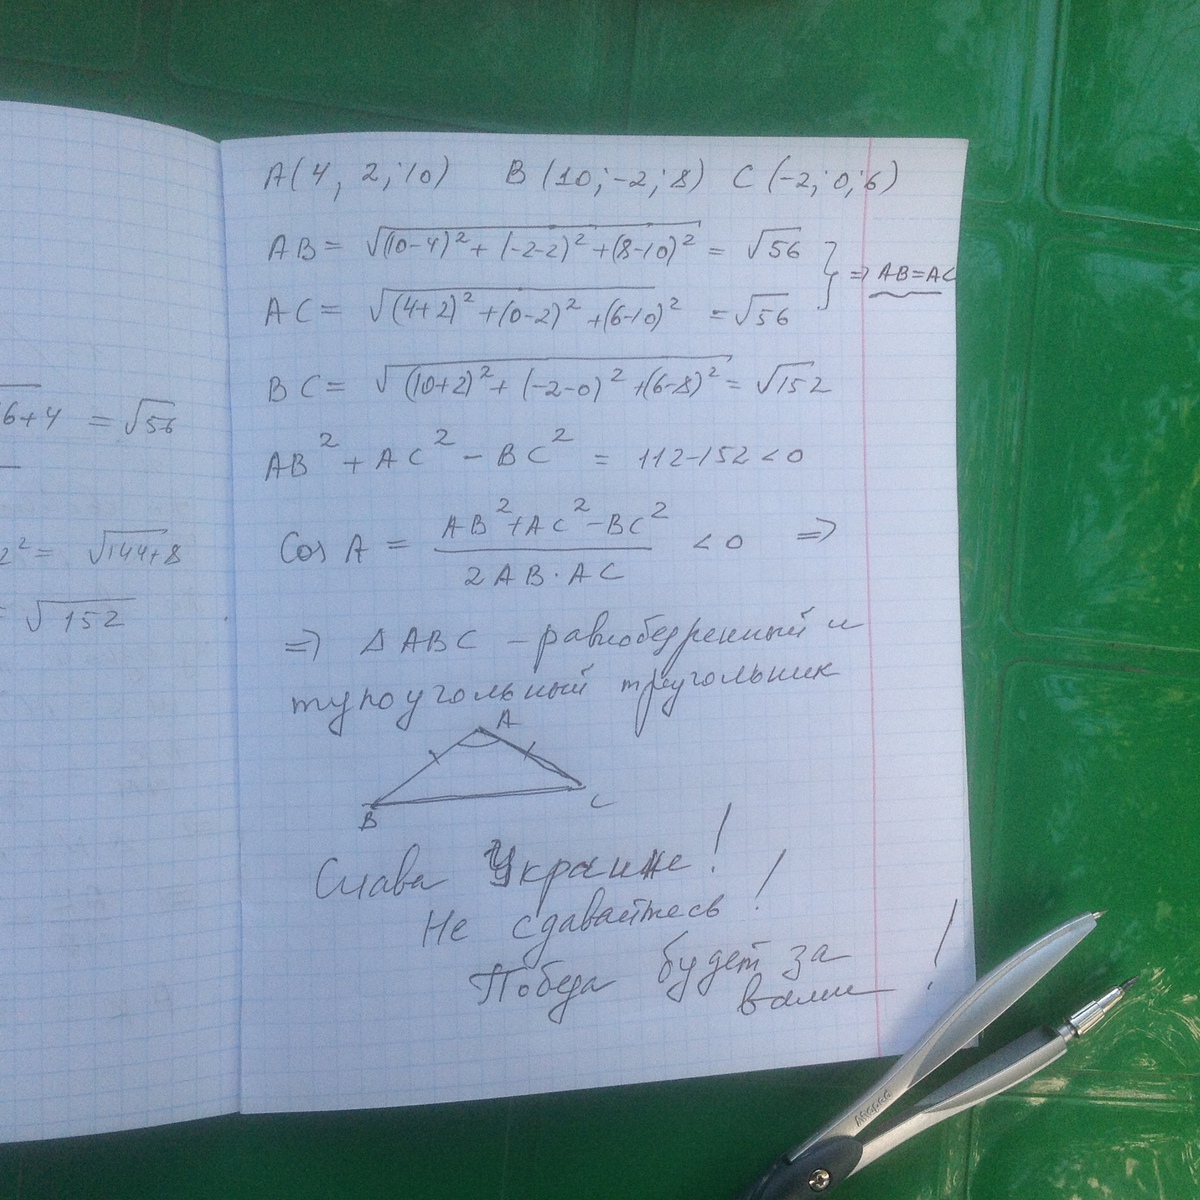 A(4, 2; 10) B(10; -2; 8) C(-2; 0; 6)
AB = √(10-4)² + (-2-2)² + (8-10)² = √56
⇒ AB=AC
AC = √(4+2)² + (0-2)² + (6-10)² = √56
BC = √(10+2)² + (-2-0)² + (6-8)² = √152
AB² + AC² - BC² = 112-152 < 0
Cos A = AB²+AC²-BC² / 2AB·AC < 0 ⇒
⇒ ΔABC - равнобедренный и
тупоугольный треугольник
A
B
C
Слава Украине!
Не сдавайтесь!
Победа будет за
вами!
6+4 = √56
2² = √144+8
= √152